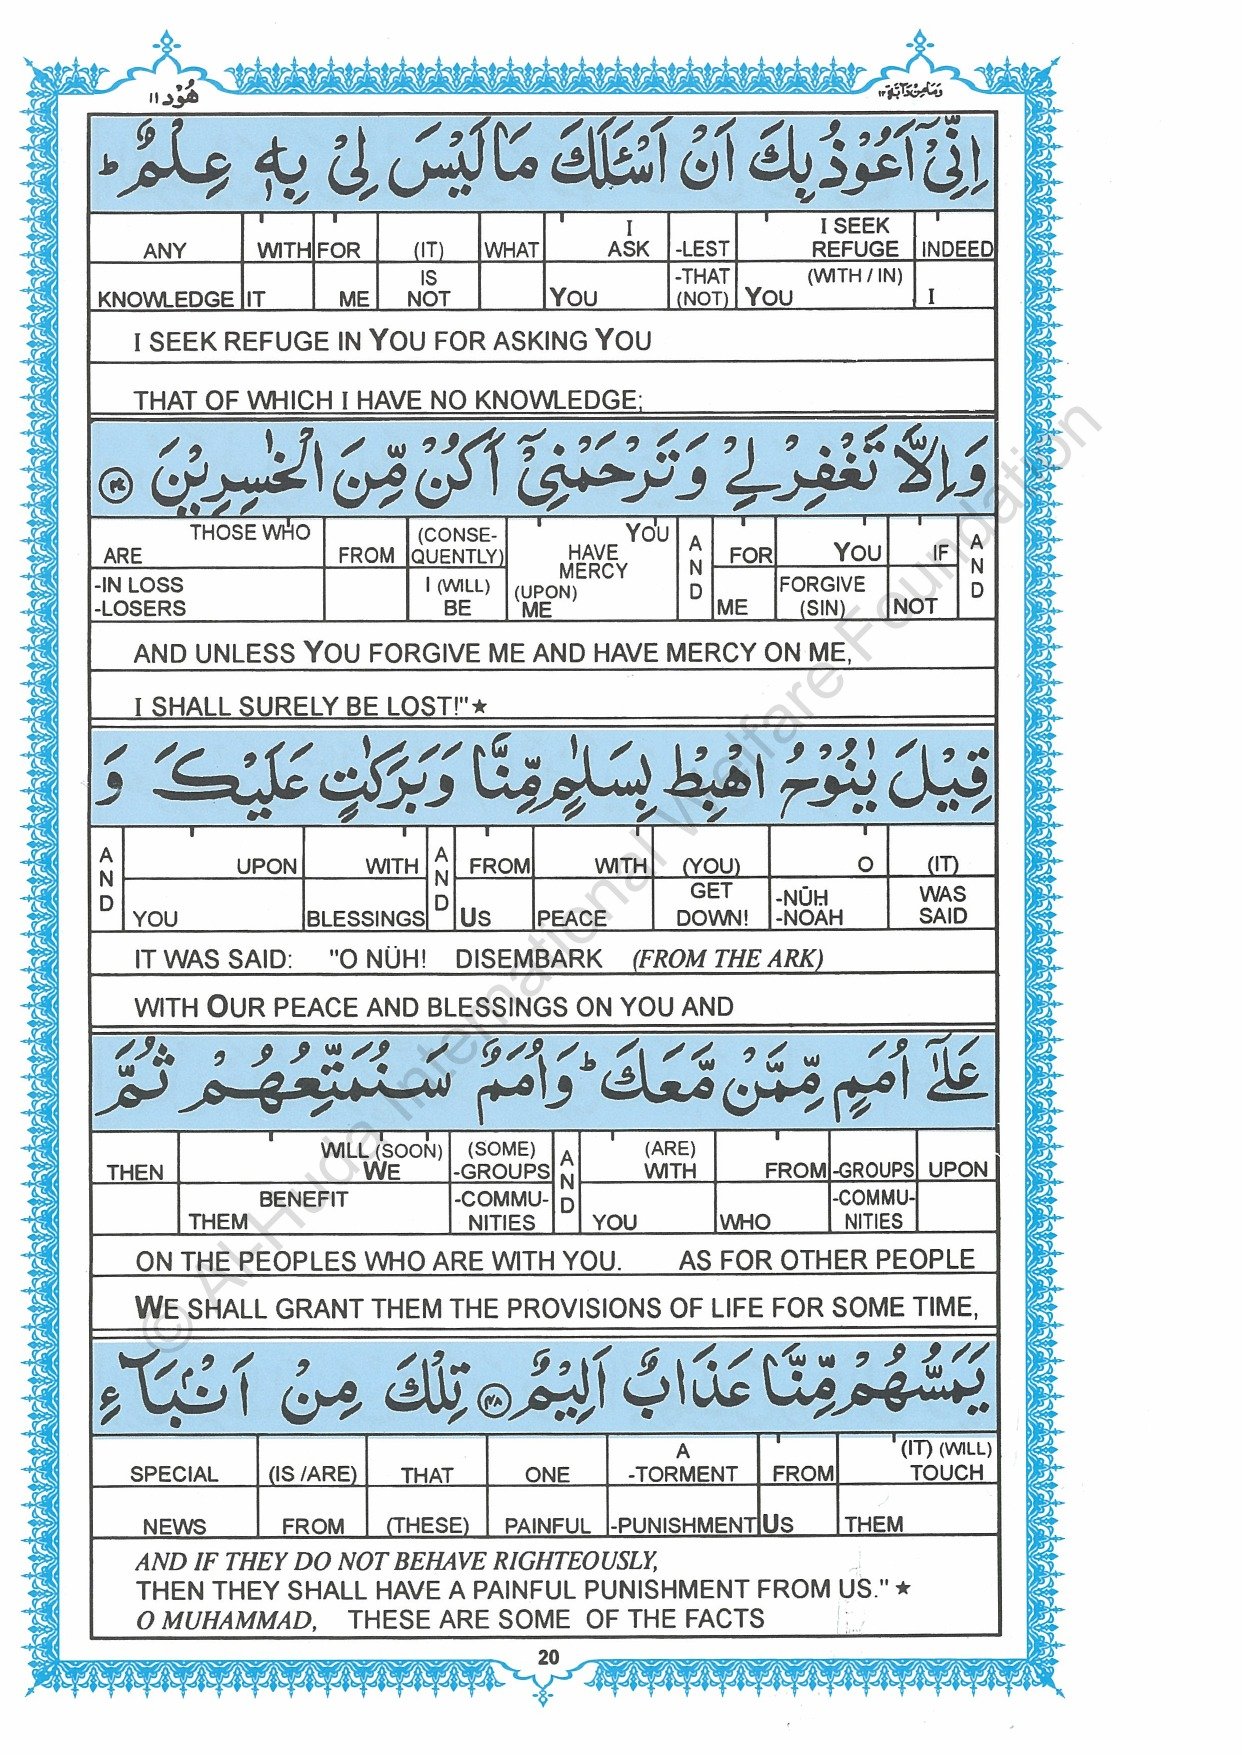 هُوْد ١١
وَمَا مِنْ دَآبَّة ١٢
اِنِّیْۤ اَعُوْذُ بِكَ اَنْ اَسْـَٔلَكَ مَا لَیْسَ لِیْ بِهٖ عِلْمٌ ؕ
ANY WITH FOR (IT) WHAT I ASK -LEST I SEEK REFUGE INDEED
KNOWLEDGE IT ME IS NOT YOU -THAT (NOT) (WITH / IN) YOU I
I SEEK REFUGE IN YOU FOR ASKING YOU
THAT OF WHICH I HAVE NO KNOWLEDGE;
وَ اِلَّا تَغْفِرْ لِیْ وَ تَرْحَمْنِیْۤ اَكُنْ مِّنَ الْخٰسِرِیْنَ ﴿۴۷﴾
THOSE WHO ARE FROM (CONSE-QUENTLY) YOU HAVE MERCY AND FOR YOU IF AND
-IN LOSS -LOSERS I (WILL) BE (UPON) ME ME FORGIVE (SIN) NOT
AND UNLESS YOU FORGIVE ME AND HAVE MERCY ON ME,
I SHALL SURELY BE LOST!"★
قِیْلَ یٰنُوْحُ اهْبِطْ بِسَلٰمٍ مِّنَّا وَ بَرَكٰتٍ عَلَیْكَ وَ
AND UPON WITH AND FROM WITH (YOU) O (IT)
YOU BLESSINGS US PEACE GET DOWN! -NŪH -NOAH WAS SAID
IT WAS SAID: "O NÜH! DISEMBARK (FROM THE ARK)
WITH OUR PEACE AND BLESSINGS ON YOU AND
عَلٰۤی اُمَمٍ مِّمَّنْ مَّعَكَ ؕ وَ اُمَمٌ سَنُمَتِّعُهُمْ ثُمَّ
THEN WILL (SOON) WE (SOME) -GROUPS AND (ARE) WITH FROM -GROUPS UPON
BENEFIT THEM -COMMU-NITIES YOU WHO -COMMU-NITIES
ON THE PEOPLES WHO ARE WITH YOU. AS FOR OTHER PEOPLE
WE SHALL GRANT THEM THE PROVISIONS OF LIFE FOR SOME TIME,
یَمَسُّهُمْ مِّنَّا عَذَابٌ اَلِیْمٌ ﴿۴۸﴾ تِلْكَ مِنْ اَنْۢبَآءِ
SPECIAL (IS /ARE) THAT ONE A -TORMENT FROM (IT) (WILL) TOUCH
NEWS FROM (THESE) PAINFUL -PUNISHMENT US THEM
AND IF THEY DO NOT BEHAVE RIGHTEOUSLY,
THEN THEY SHALL HAVE A PAINFUL PUNISHMENT FROM US." ★
O MUHAMMAD, THESE ARE SOME OF THE FACTS
20
© Al-Huda International Welfare Foundation